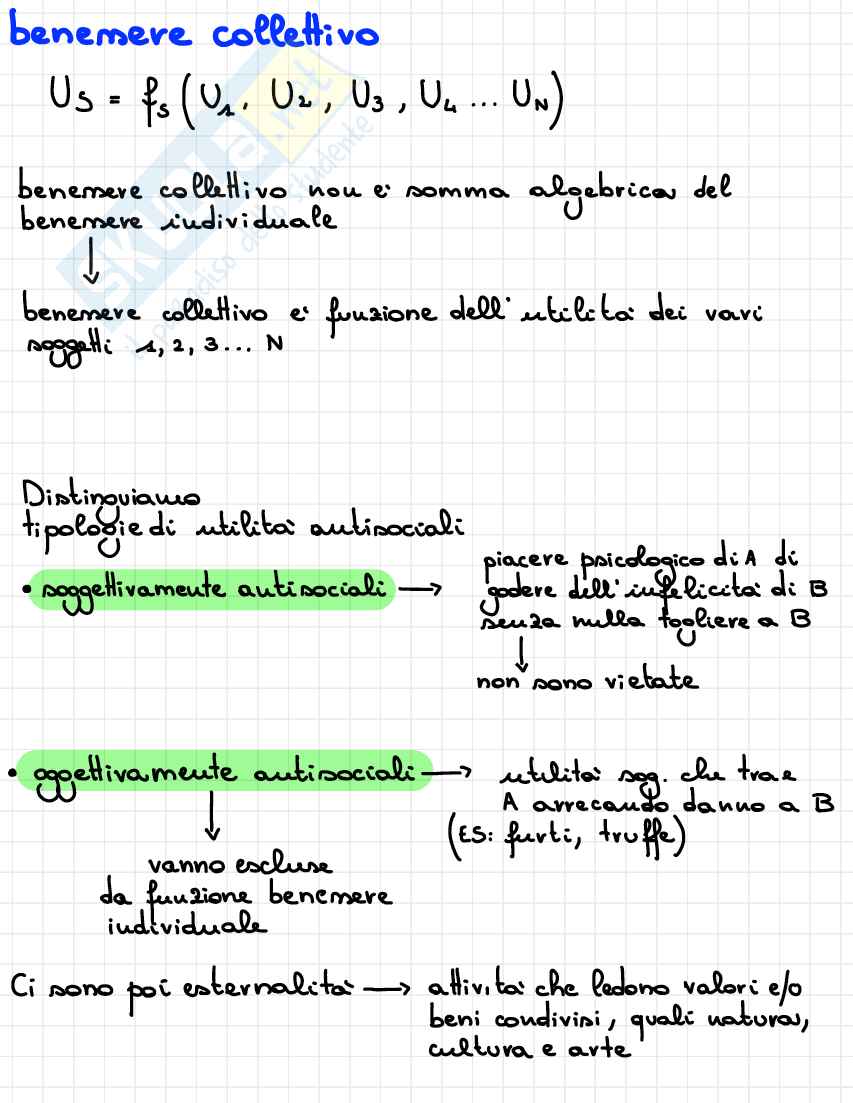 benessere collettivo
U_S = f_S (U_1, U_2, U_3, U_4 ... U_N)
benessere collettivo non è somma algebrica del
benessere individuale
↓
benessere collettivo è funzione dell'utilità dei vari
soggetti 1, 2, 3... N
Distinguiamo
tipologie di utilità antisociali
• soggettivamente antisociali →
piacere psicologico di A di
godere dell'infelicità di B
senza nulla togliere a B
↓
non sono vietate
• oggettivamente antisociali →
utilità sog. che trae
A arrecando danno a B
(ES: furti, truffe)
↓
vanno escluse
da funzione benessere
individuale
Ci sono poi esternalità → attività che ledono valori e/o
beni condivisi, quali natura,
cultura e arte
SKUOLA.net
il paradiso dello studente